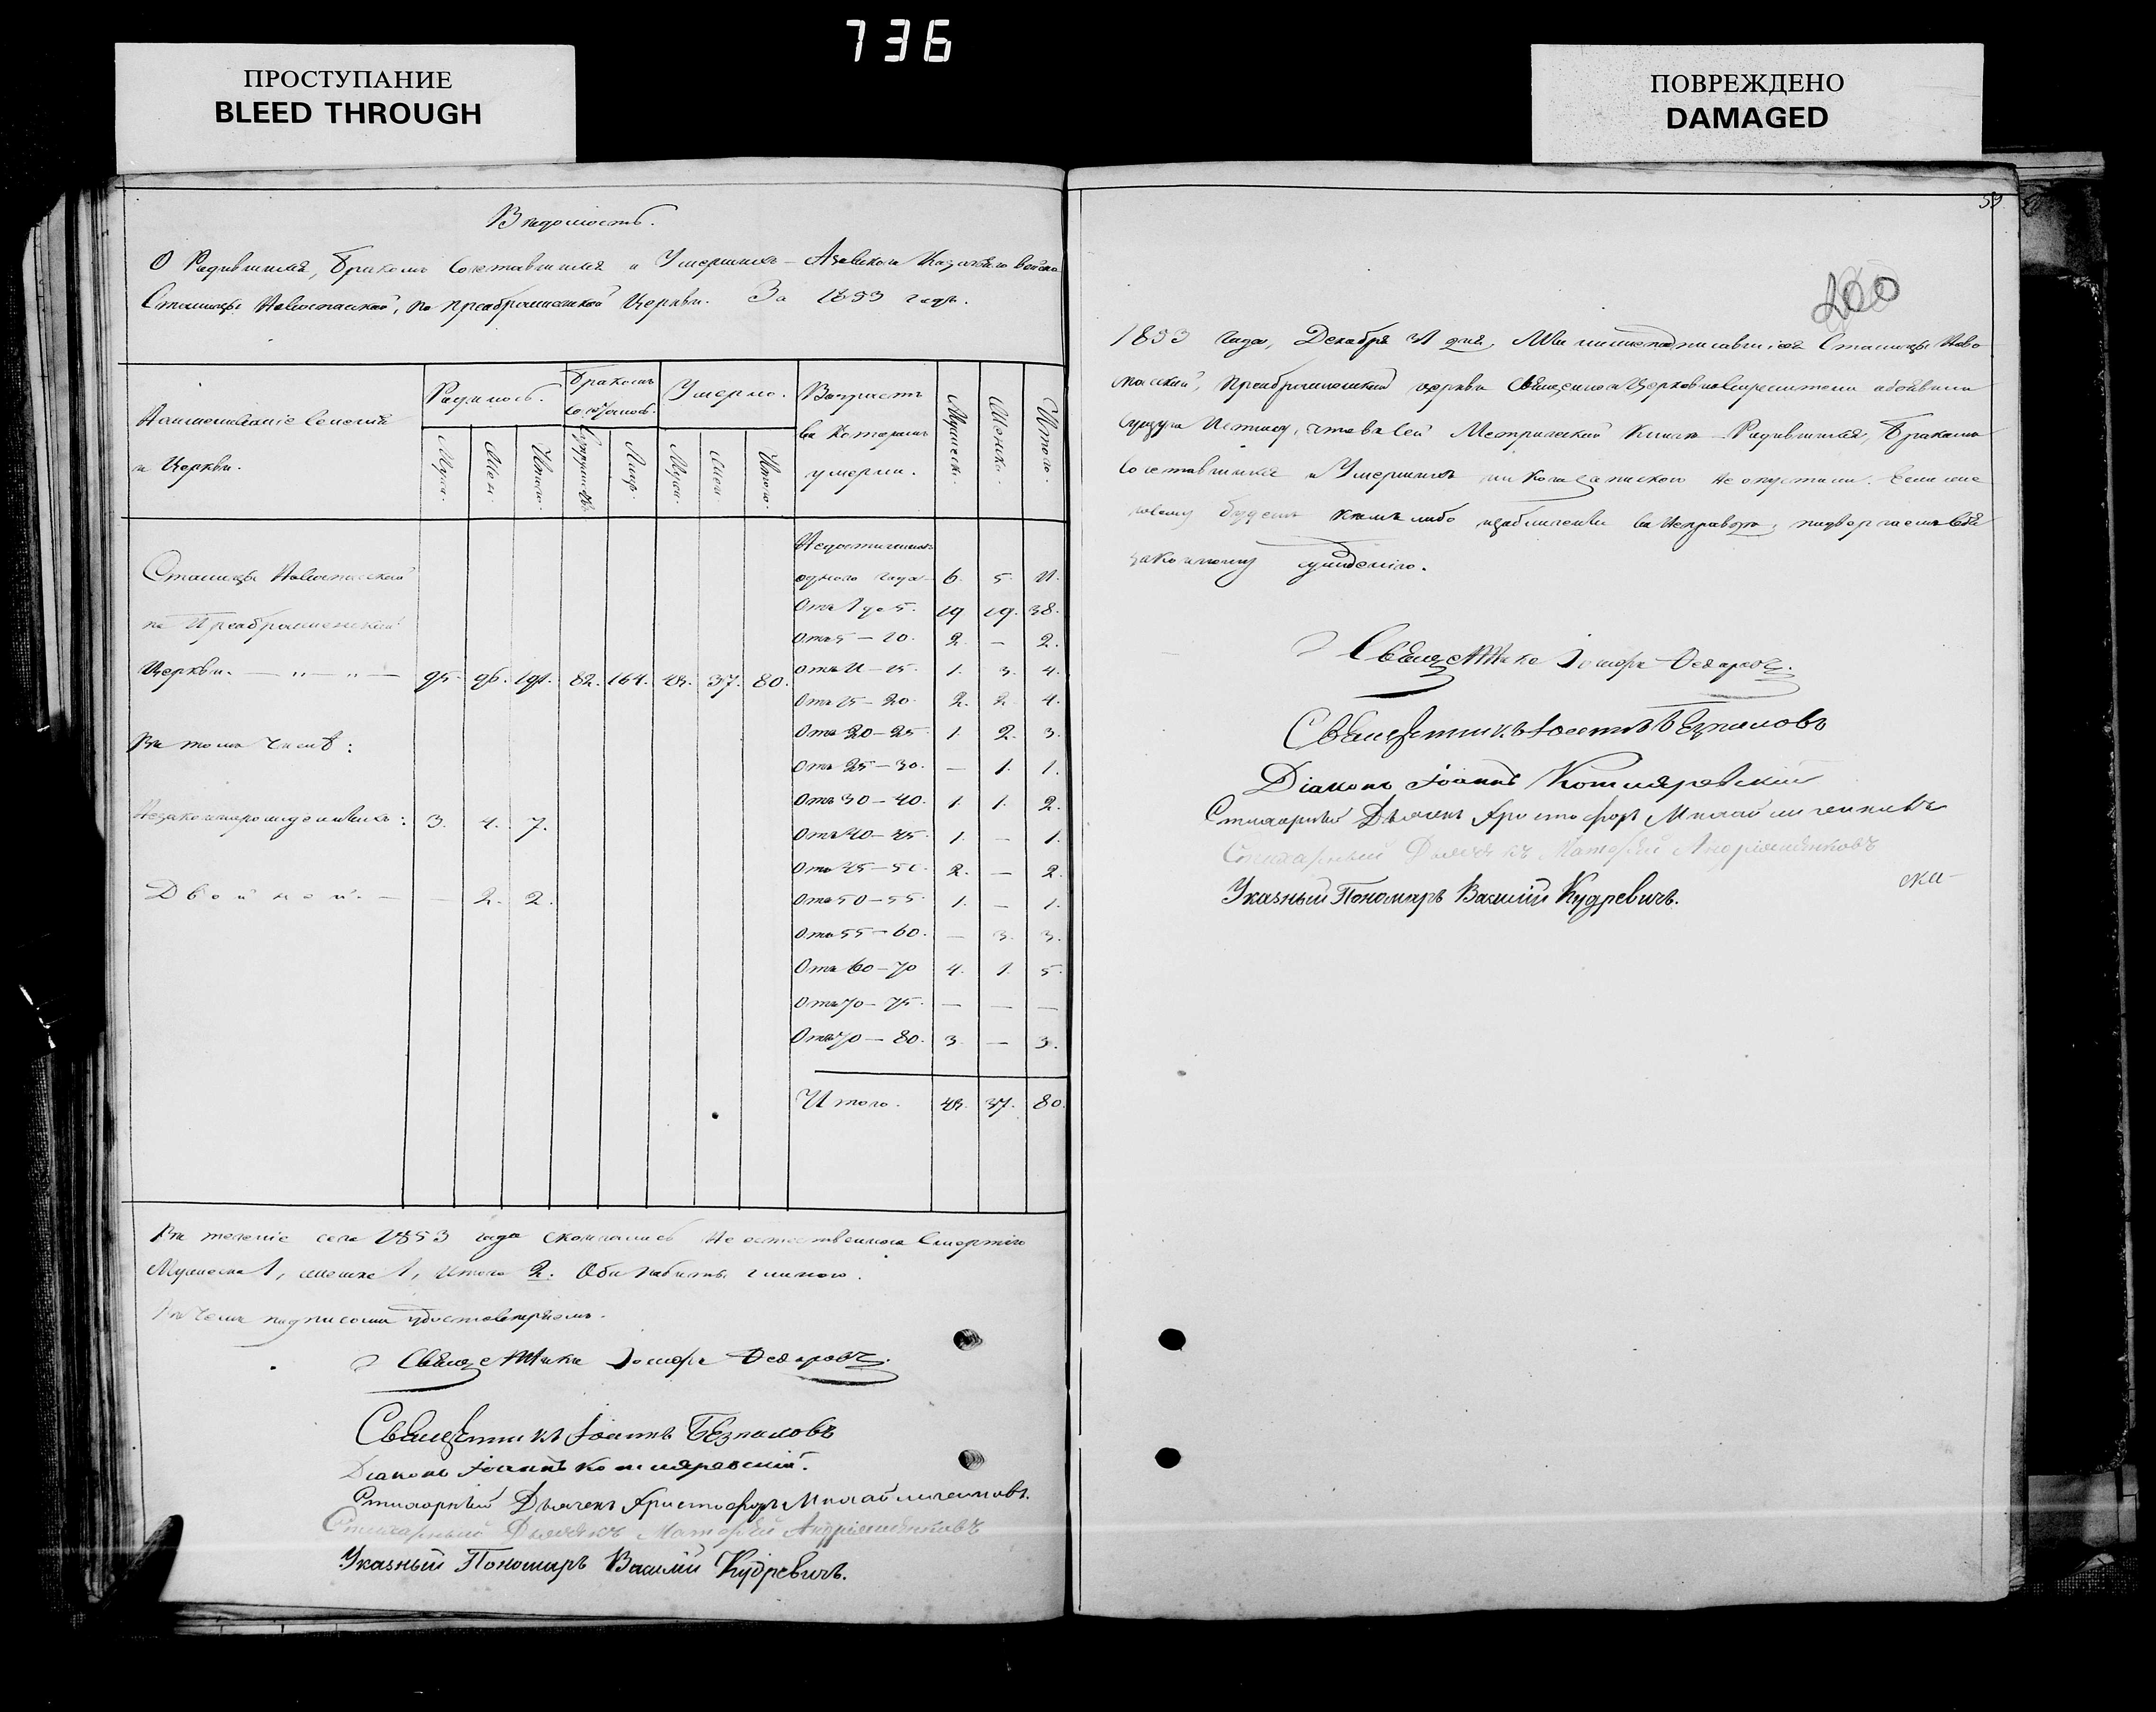 736
ПРОСТУПАНИЕ
BLEED THROUGH
ПОВРЕЖДЕНО
DAMAGED
Вѣдомость.
О Родившихся, бракомъ Сочетавшихся и Умершихъ Азовскаго Казачьяго войска
Станицы Новоспаской, по преображенской Церкви. За 1853 годъ.
Наименованіе Селеній
и Церкви.
Родилось.
Бракомъ
Умерло.
Возрастъ
въ Которомъ
умерли.
Муж. Жен. Итого. Лиц. Муж. Жен. Итого. Мужеск. Женск. Итого.
Недостигшихъ
одного года 6. 5. 11.
Отъ 1 до 5. 19 19. 38.
Отъ 5 — 10. 2. — 2.
Отъ 11 — 15. 1. 3. 4.
Отъ 15 — 20. 2. 2. 4.
Отъ 20 — 25. 1. 2. 3.
Отъ 25 — 30. — 1. 1.
Отъ 30 — 40. 1. 1. 2.
Отъ 40 — 45. 1. — 1.
Отъ 45 — 50. 2. — 2.
Отъ 50 — 55. 1. — 1.
Отъ 55 — 60. — 3. 3.
Отъ 60 — 70 4. 1. 5.
Отъ 70 — 75. — — —
Отъ 70 — 80. 3. — 3.
Итого. 43. 37. 80.
Станицы Новоспаской
по Преображенской
Церкви. — " — " — 95. 96. 191. 82. 164. 43. 37. 80.
Въ томъ Числѣ:
Незаконнорожденныхъ: 3. 4. 7.
Двойней. — — 2. 2.
Въ теченіе сего 1853 года скончались не естественною Смертію
Мужеска 1, женска 1, Итого 2. Оба глиною.
Въ чемъ подписомъ удостовѣряемъ.
Священникъ Ѳедоровъ.
Священникъ Іоаннъ Безпаловъ
Діаконъ Іоаннъ Котляревскій.
Стихарный Дьячекъ Христофоръ
Стихарный Дьячекъ
Указный Пономарь Василій Кудревичъ.
59
200
1853 года, Декабря 31 дня, Мы нижеподписавшіеся Станицы Ново
спаской, преображенской церкви Священно и Церковнослужители объявили
сущую Истину, что въ сей Метрической Книгѣ Родившихся, Бракомъ
Сочетавшихся и Умершихъ никого запискою не опустили. Если же
будемъ кѣмъ либо въ Неправдѣ, подвергаемъ себя
законному сужденію.
Священникъ Ѳедоровъ.
Священникъ Іоаннъ Безпаловъ
Діаконъ Іоаннъ Котляревскій
Стихарный Дьячекъ Христофоръ
Стихарный Дьячекъ
Указный Пономарь Василій Кудревичъ.